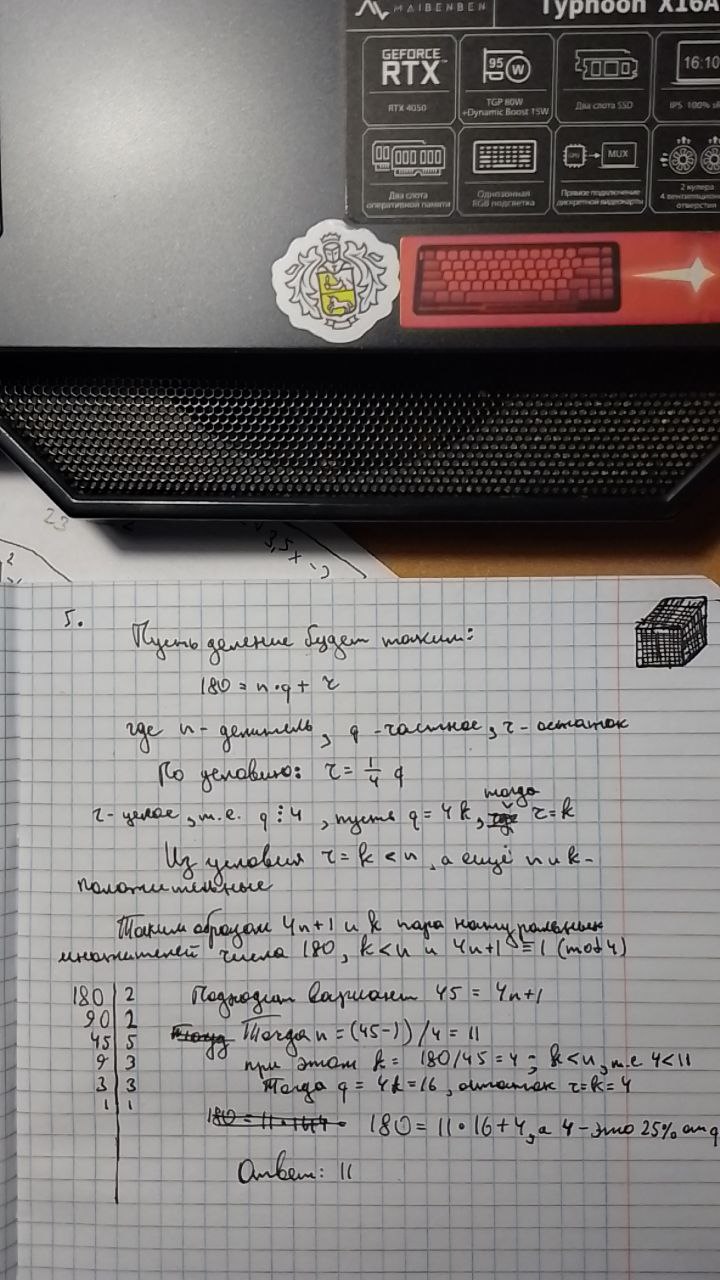 MAIBENBEN
Typhoon X16A
GEFORCE
RTX
RTX 4050
95 W
TGP 80W
+Dynamic Boost 15W
Два слота SSD
16:10
IPS 100% s
Два слота
оперативной памяти
Однозонная
RGB подсветка
MUX
Прямое подключение
дискретной видеокарты
2 кулера
4 вентиляцион
отверстия
23
3,5
5.
Пусть деление будет таким:
180 = n·q + r
где n - делитель, q - частное, r - остаток
По условию: r = 1/4 q
r - целое, т.е. q ⋮ 4, пусть q = 4k, тогда r = k
Из условия r = k < n, а ещё n и k -
положительные
Таким образом 4n+1 и k пара натуральных
множителей числа 180, k<n и 4n+1 ≡ 1 (mod 4)
180 | 2
90 | 2
45 | 5
9 | 3
3 | 3
1 | 1
Подходит вариант 45 = 4n+1
Тогда n = (45-1)/4 = 11
при этом k = 180/45 = 4; k<n, т.е 4<11
Тогда q = 4k = 16, остаток r=k=4
180 = 11·16+4, а 4 - это 25% от q
Ответ: 11